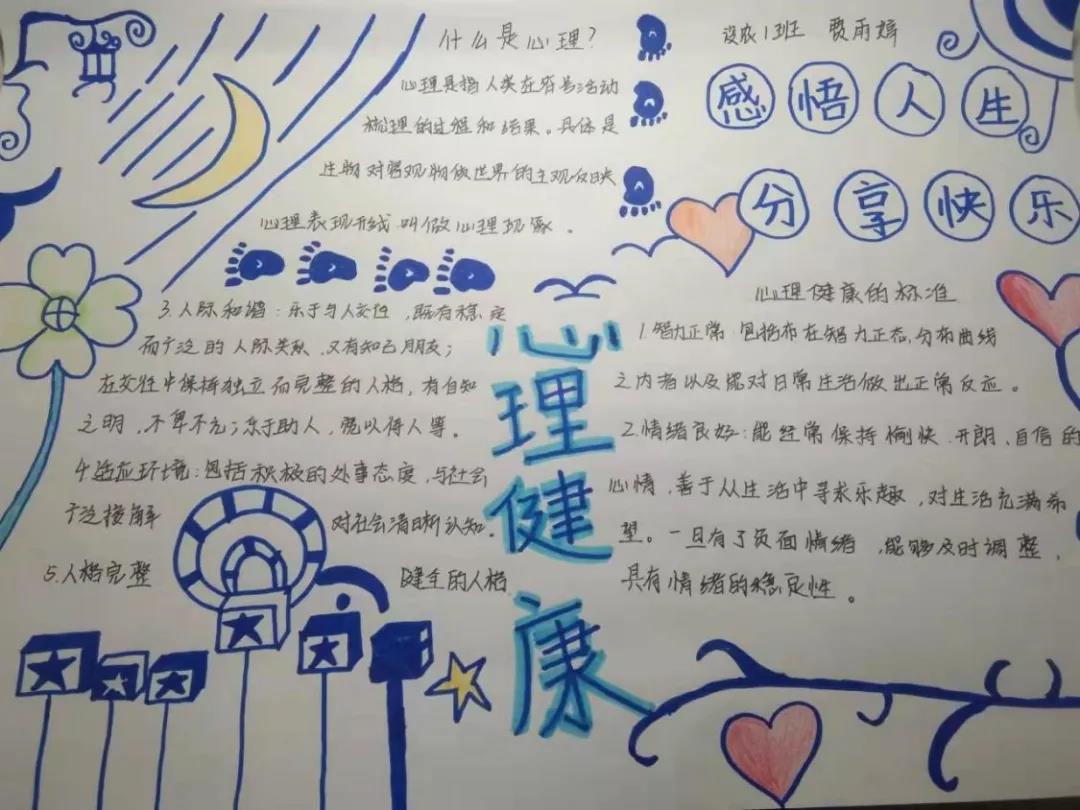 什么是心理?
心理是指人类在符号活动
梳理的过程和结果。具体是
生物对客观物质世界的主观反映
心理表现形式 叫做心理现象。
设农1班 雨婷
感悟人生
分享快乐
心理健康
心理健康的标准
1.智力正常:包括布在智力正态,分布曲线
之内者以及能对日常生活做出正常反应。
2.情绪良好:能经常保持愉快.开朗,自信的
心情,善于从生活中寻求乐趣,对生活充满希
望。一旦有了负面情绪,能够及时调整,
具有情绪的稳定性。
3.人际和谐:乐于与人交往,既有稳定
而广泛的人际关系,又有知己朋友;
在交往中保持独立而完整的人格,有自知
之明,不卑不亢;乐于助人,宽以待人等。
4.适应环境:包括积极的处事态度,与社会
广泛接触 对社会清晰认知。
5.人格完整 健全的人格